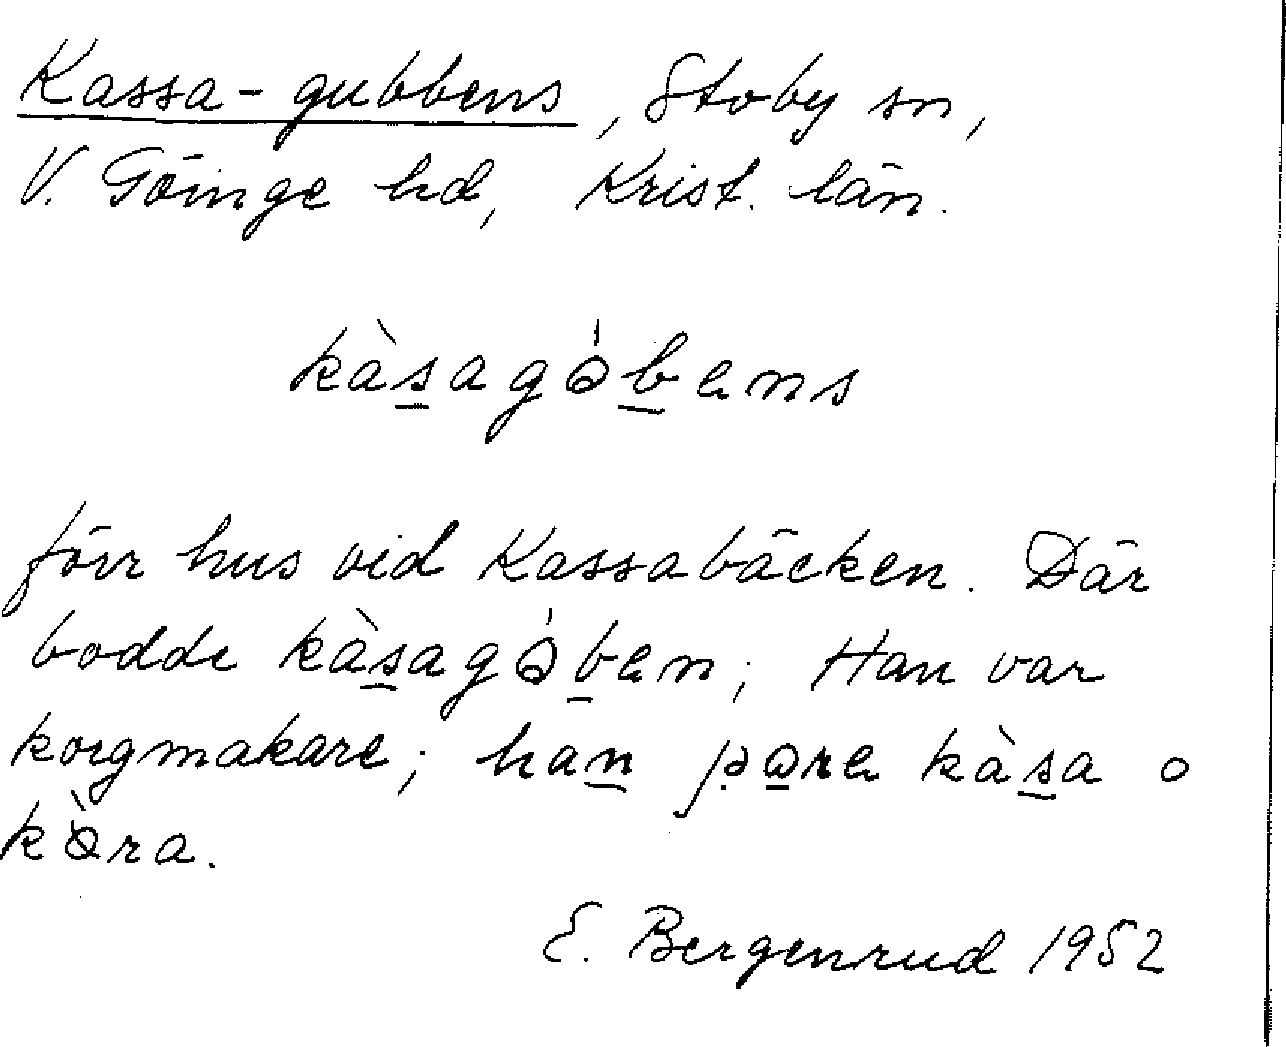 Kassa-gubbens, Stoby sn,
V. Göinge hd, Krist. län.
kàs̲agə́b̲ens
förr hus vid Kassabäcken. Där
bodde kàs̲agə́b̲en; Han var
korgmakare; han̲ kàs̲a o
E. Bergenrud 1952